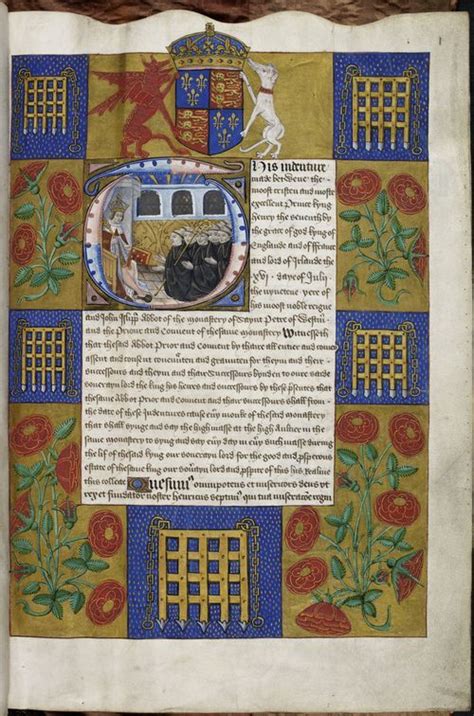 His indenture
made betwene the
moost cristen and moste
excellent Prince kyng
henry the seventh by
the grace of god kyng of
Englande and of ffrance
and lord of Irlande the
xvj daye of July
the nynetene yere of
his moost noble reigne
and John Islipp Abbot of the monastery of Saynt Peter of Westm
and the Prior and Convent of thesame monastery Witnesseth
that the said Abbot Prior and Convent by thaire alle entier and comon
assent and consent covenũten and graunten for theym and their
successours and theym and thair Successours bynden to oure saide
soverayn lord the king his heires and successours by these p̃sentes that
thesame abbot Prior and Convent and thair successours shall from
the date of these Indentures cause eṽy monk of thesaid monastery
that shall synge and say the high masse at the high Aulter in the
same monastery to syng and say eṽy day in eṽy such masse during
the lif of thesaid kyng our soverayn lord for the good and p̃sperous
estate of thesame king our soṽayn lord and p̃spite of this his Realme
this collecte Quesumus omnipotens et misericors deus ut
rex et fundator noster henricus septimus qui tua miseracõe regni